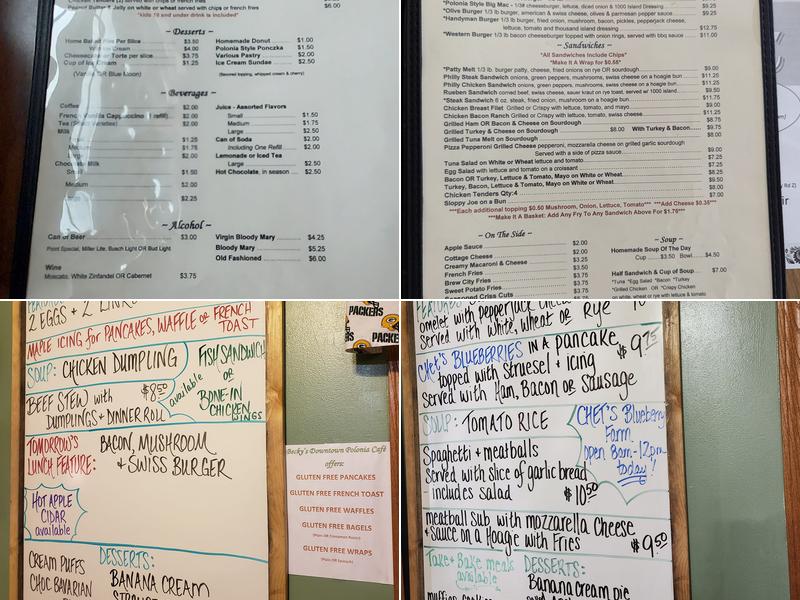 Jelly on white bread, served with chips or french fries
$6.00
*kids 10 and under drink is included*
~ Desserts ~
Home Baked Pies Per Slice $3.50
With Ice Cream $4.00
Torte per slice $3.75
Cup of Ice $1.25
(Vanilla OR Blue Moon)
Homemade Donut $1.00
Polonia Style Ponczka $1.50
Various Pastry $2.00
Ice Cream Sundae $2.50
(flavored topping, whipped cream & cherry)
~ Beverages ~
Coffee $2.00
French Vanilla Cappuccino (1 refill) $2.00
Tea $2.00
Milk
$1.25
Medium $1.75
Large $2.00
Chocolate Milk
Small $1.50
Medium $2.00
$2.25
Juice - Assorted Flavors
Small $1.50
Medium $1.75
Large $2.50
Can of Soda $2.00
Including One Refill $2.00
Lemonade or Iced Tea
Large $2.50
Hot Chocolate, in season $2.50
~ Alcohol ~
Can of Beer $3.00
Point Special, Miller Lite, Busch Light OR Bud Light
Wine
Moscato, White Zinfandel OR Cabernet $3.75
Virgin Bloody Mary $4.25
Bloody Mary $5.25
Old Fashioned $6.00
*Polonia Style Big Mac - cheeseburger, lettuce, diced onion & 1000 Island Dressing $9.25
*Olive Burger 1/3 lb burger, american & swiss cheese, olives & parmesan pepper sauce $9.25
*Handyman Burger 1/3 lb burger, fried onion, mushroom, bacon, pickles, pepperjack cheese,
lettuce, tomato and thousand island dressing $12.75
*Western Burger 1/3 lb bacon cheeseburger topped with onion rings, served with bbq sauce $11.00
~ Sandwiches ~
*All Sandwiches Include Chips*
*Make It A Wrap for $0.55*
*Patty Melt 1/3 lb. burger patty, cheese, fried onions on rye OR sourdough $9.00
Philly Steak Sandwich onions, green peppers, mushrooms, swiss cheese on a hoagie bun $11.25
Philly Chicken Sandwich onions, green peppers, mushrooms, swiss cheese on a hoagie bun $11.25
Rueben Sandwich corned beef, swiss cheese, sauer kraut on rye toast, served w/ 1000 island $9.50
*Steak Sandwich 6 oz. steak, fried onion, mushroom on a hoagie bun $11.75
Chicken Breast Filet Grilled or Crispy with lettuce, tomato, and mayo $9.00
Chicken Bacon Ranch Grilled or Crispy with lettuce, tomato, swiss cheese $11.25
Grilled Ham OR Bacon & Cheese on Sourdough $8.75
Grilled Turkey & Cheese on Sourdough $8.00 With Turkey & Bacon $9.75
Grilled Tuna Melt on Sourdough $8.00
Pizza Pepperoni Grilled Cheese pepperoni, mozzarella cheese on grilled garlic sourdough
Served with a side of pizza sauce $9.00
Tuna Salad on White or Wheat lettuce and tomato $7.25
Egg Salad with lettuce and tomato on a croissant $7.25
Bacon OR Turkey, Lettuce & Tomato, Mayo on White or Wheat $8.25
Turkey, Bacon, Lettuce & Tomato, Mayo on White or Wheat $9.00
Chicken Tenders Qty:4 $8.00
Sloppy Joe on a Bun $7.00
***Each additional topping $0.50 Mushroom, Onion, Lettuce, Tomato*** ***Add Cheese $0.35***
***Make It A Basket: Add Any Fry To Any Sandwich Above For $1.75***
~ On The Side ~
Apple Sauce $2.00
Cottage Cheese $2.00
Creamy Macaroni & Cheese $3.25
French Fries $3.50
Brew City Fries $3.75
Sweet Potato Fries $3.75
Seasoned Criss Cuts
~ Soup ~
Homemade Soup Of The Day
Cup $3.50 Bowl $4.50
Half Sandwich & Cup of Soup $7.00
*Tuna *Egg Salad *Bacon *Turkey
*Grilled Chicken OR *Crispy Chicken
on white, wheat or rye with lettuce & tomato
2 EGGS + 2 LINKS
MAPLE ICING for PANCAKES, WAFFLE or FRENCH TOAST
SOUP: CHICKEN DUMPLING
BEEF STEW with $8.50
DUMPLINGS + DINNER ROLL
available
FISH SANDWICH
OR
BONE-IN
CHICKEN
WINGS
TOMORROW'S
LUNCH FEATURE:
BACON, MUSHROOM
& SWISS BURGER
HOT APPLE
CIDAR
available
CREAM PUFFS
CHOC BAVARIAN
DESSERTS:
BANANA CREAM
PACKERS
Becky's Downtown Polonia Café
offers:
GLUTEN FREE PANCAKES
GLUTEN FREE FRENCH TOAST
GLUTEN FREE WAFFLES
GLUTEN FREE BAGELS
GLUTEN FREE WRAPS
omelet with pepperjack cheese
Served with white, wheat or Rye
CHET'S BLUEBERRIES IN A pancake $9.75
topped with Struesel + icing
Served with Ham, Bacon or Sausage
SOUP: TOMATO RICE
CHET'S Blueberry
Farm
open 8am-12pm
today!
Spaghetti + meatballs
Served with slice of garlic bread
includes salad $10.50
meatball sub with mozzarella cheese
+ sauce on a Hoagie with Fries $9.50
Take + Bake meals
available
DESSERTS:
Banana cream pie